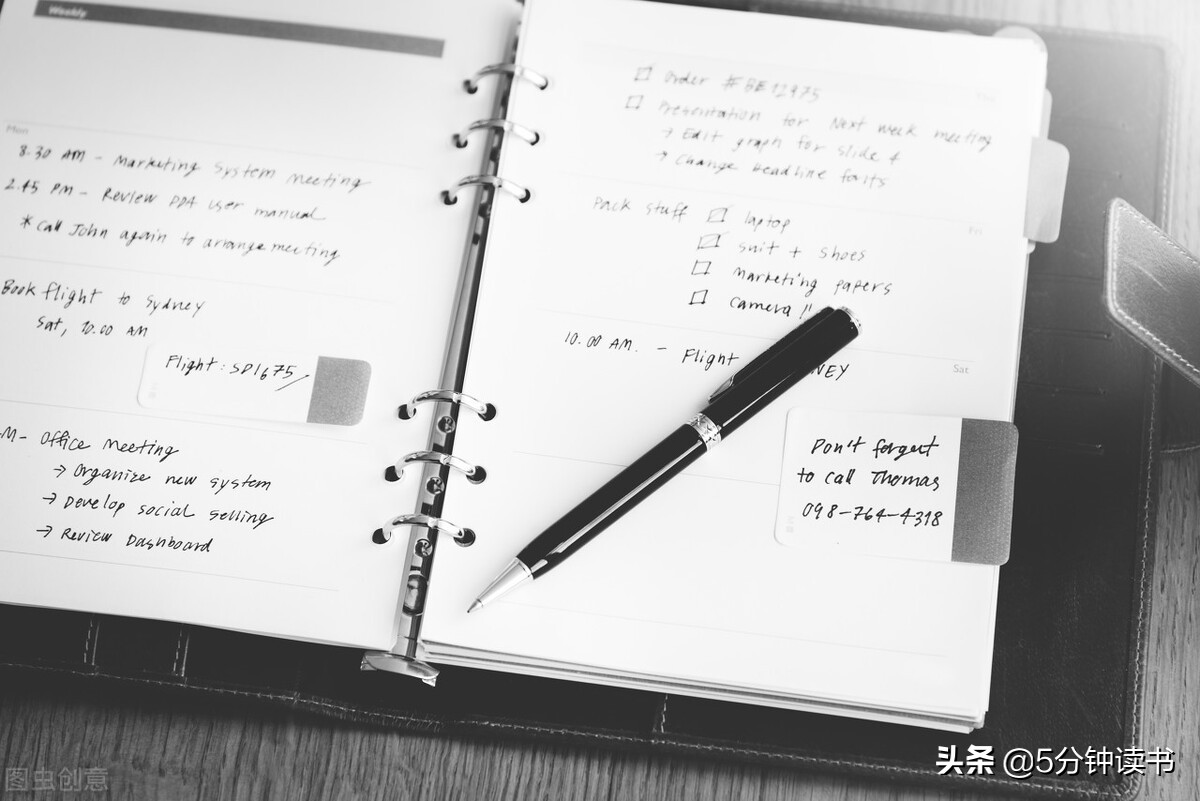 Weekly
Mon
8.30 AM - Marketing System Meeting
2.45 PM - Review PDA user manual
* Call John again to arrange meeting
Book flight to Sydney
Sat, 10.00 AM
Flight: SD1675
M - Office Meeting
→ Organize new system
→ Develop social selling
→ Review Dashboard
Thu
Order #BE12975
Presentation for Next week meeting
→ Edit graph for slide 4
→ Change Deadline
Fri
Pack stuff laptop
suit + shoes
Marketing papers
camera !!
Sat
10.00 AM. - Flight NEY
Don't forget
to call Thomas
098-764-4318
头条 @5分钟读书
图虫创意